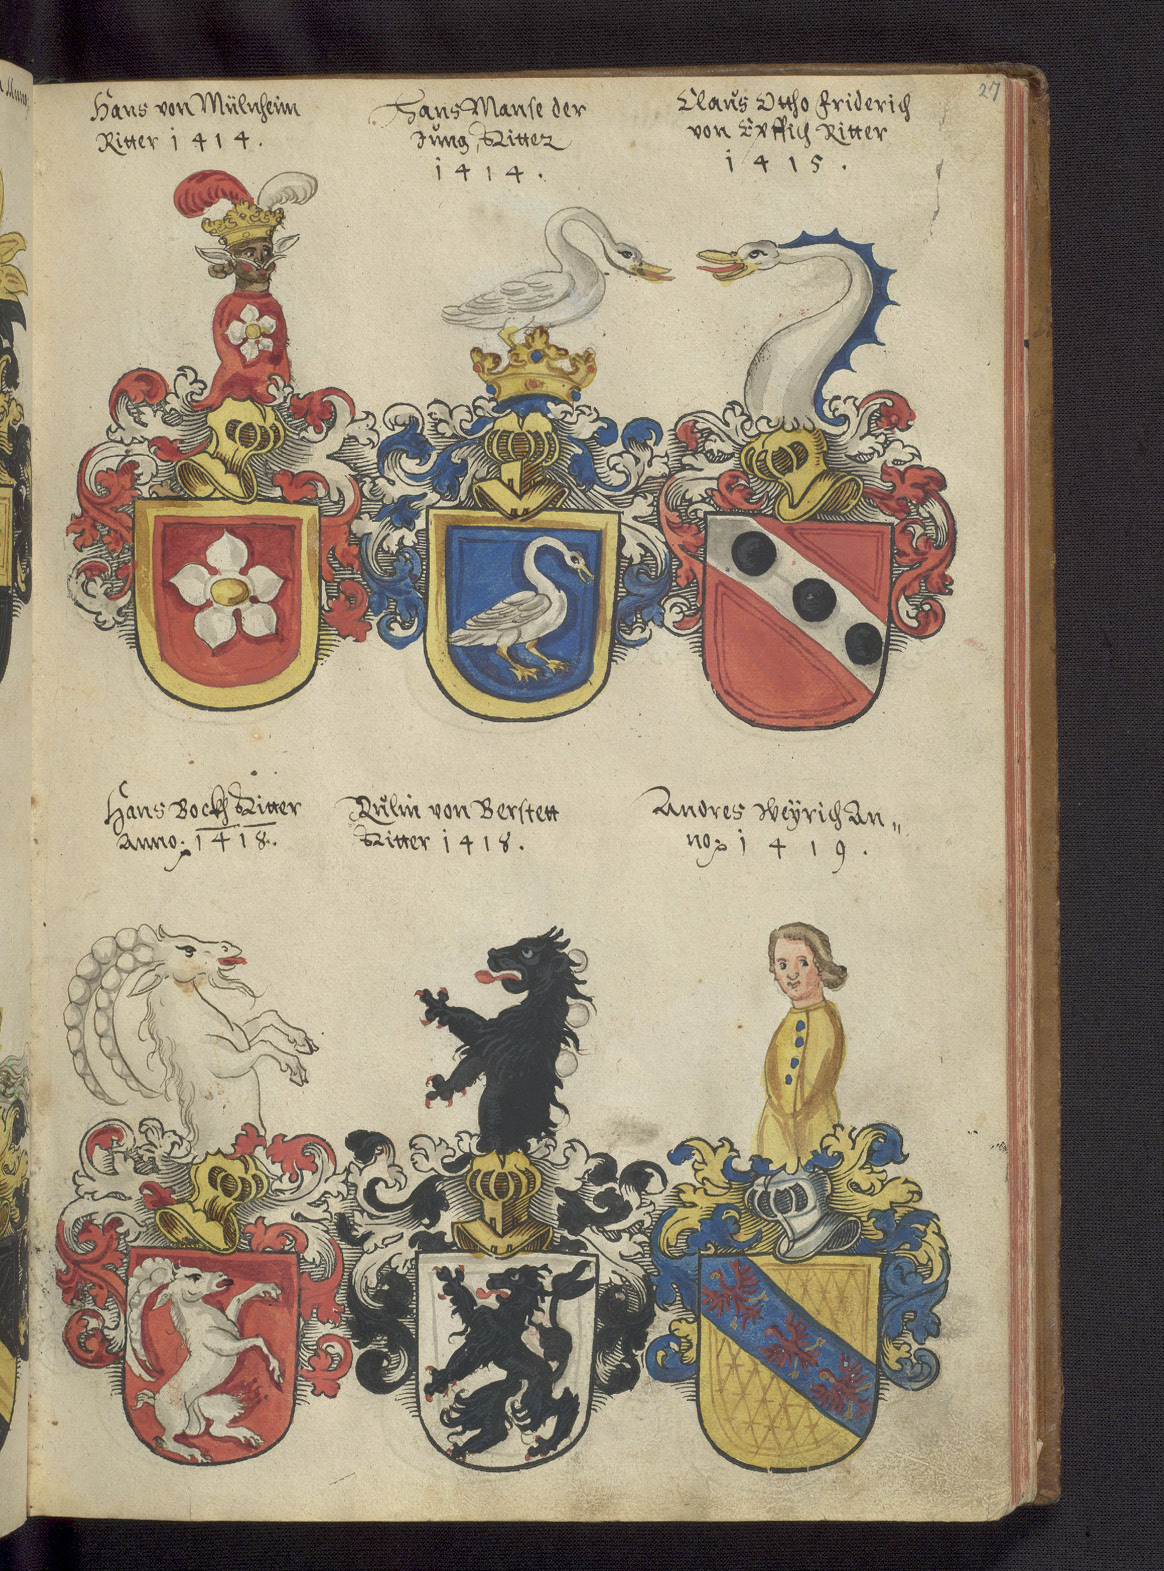 27
Hans von Mülnheim
Ritter 1414.
Hans Manse der
Jung Ritter
1414.
Claus Ottho Friderich
von Ritter
1415.
Hans Bockh Ritter
Anno. 1418.
Rulin von Berstett
Ritter 1418.
Andres Weyrich An„
no 1419.